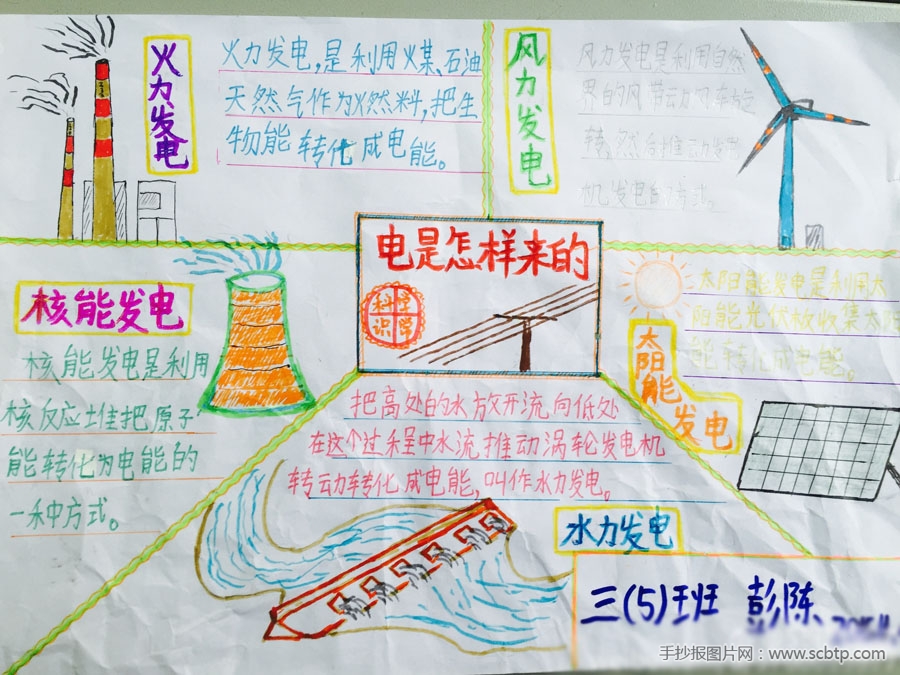 火力发电
火力发电,是利用煤、石油
天然气作为燃料,把生
物能转化成电能。
风力发电
风力发电是利用自然
界的风带动风车旋
转,然后推动发电
机发电的方式。
电是怎样来的
科学
识学
核能发电
核能发电是利用
核反应堆把原子
能转化为电能的
一种方式。
太阳能发电是利用太
阳能光伏放收集太阳
能转化成电能。
太阳能
发电
把高处的水放开流向低处
在这个过程中水流推动涡轮发电机
转动转化成电能,叫作水力发电。
水力发电
三(5)班 彭陈
手抄报图片网:www.scbtp.com